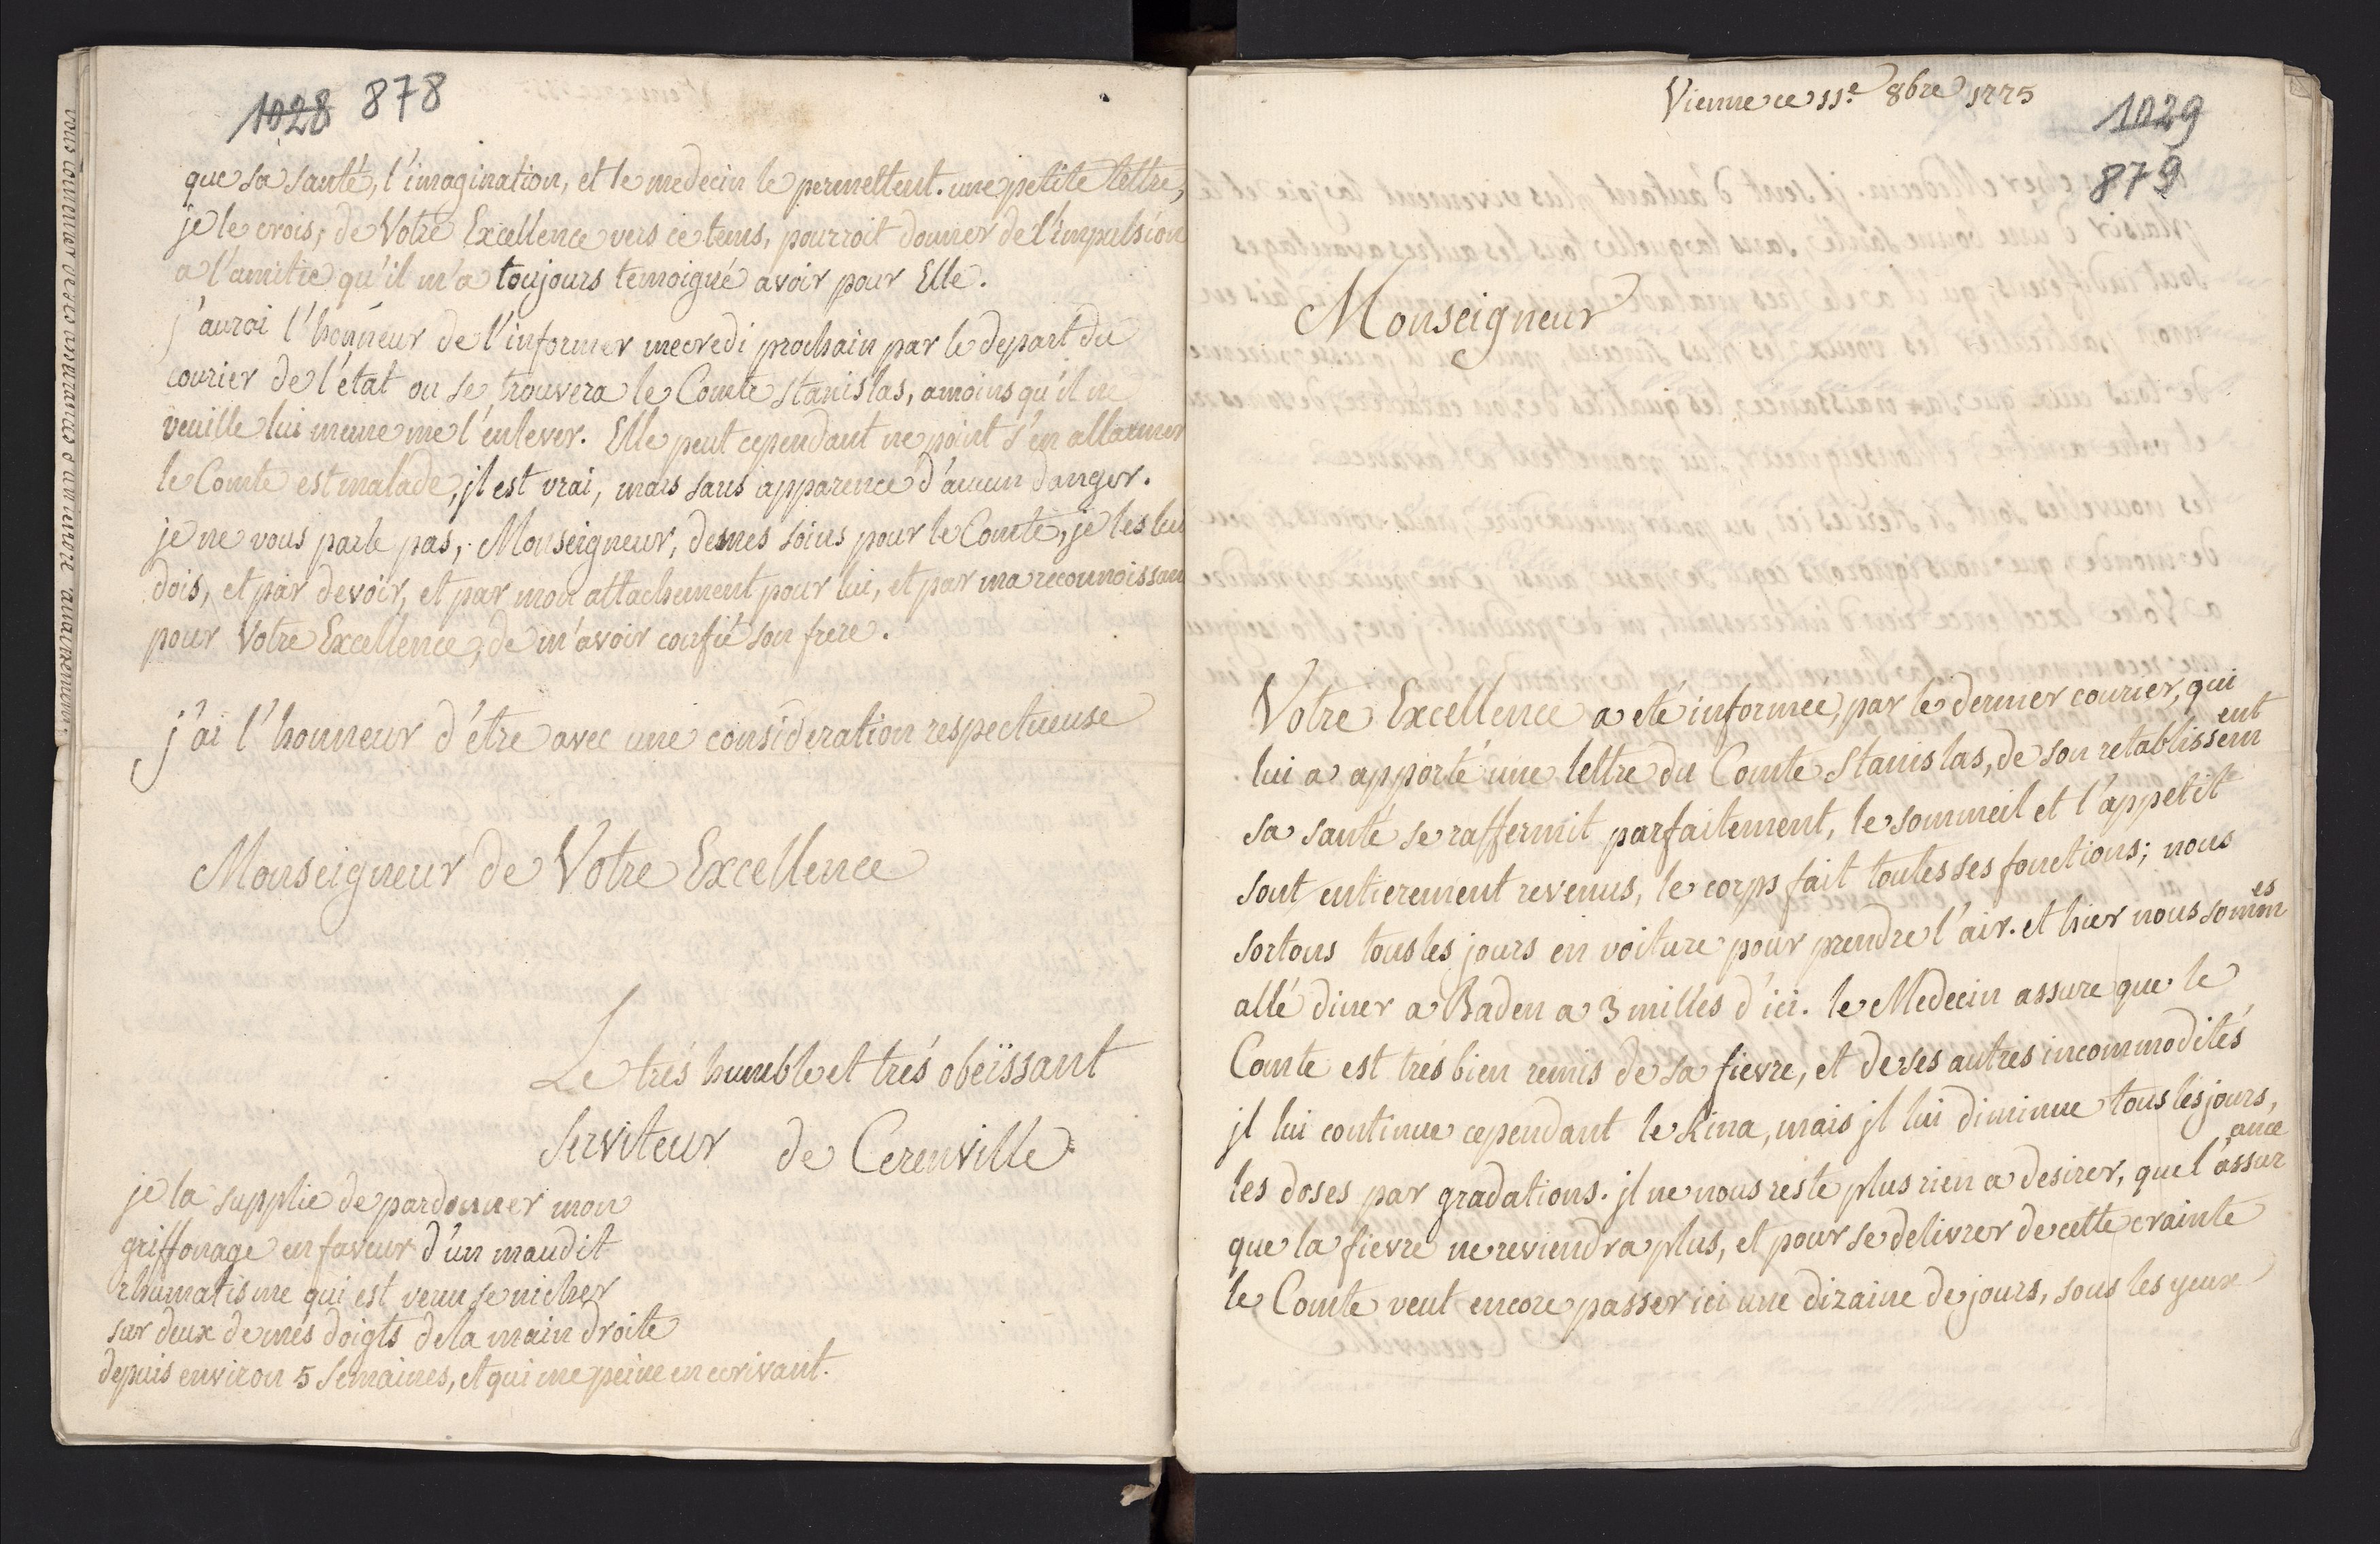 1028 878
que sa santé, l'imagination, et le medecin le permettent. une petite lettre,
je le crois, de Votre Excellence vers ce tems, pourroit donner de l'impulsion
a l'amitie qu'il m'a toujours temoigné avoir pour Elle.
j'aurai l'honneur de l'informer mecredi prochain par le depart du
courier de l'état ou se trouvera le Comte Stanislas, amoins qu'il ne
veuille lui meme me l'enlever. Elle peut cependant ne point s'en allarmer
le Comte est malade, jl est vrai, mais sans apparence d'aucun danger.
je ne vous parle pas, Monseigneur, de mes soins pour le Comte, je les lui
dois, et par devoir, et par mon attachement pour lui, et par ma reconnoissan
pour Votre Excellence, de m'avoir confié son frere.
j'ai l'honneur d'étre avec une consideration respectueuse
Monseigneur de Votre Excellence
Le trés humble et trés obeïssant
Serviteur de Cerenville
je la supplie de pardonner mon
griffonage en faveur d'un maudit
rhumatisme qui est venu se nicher
sur deux de mes doigts de la main droite
depuis environ 5 Semaines, et qui me peine en ecrivant.
Vienne ce 11e 8bre 1775
1029
879
Monseigneur
Votre Excellence a eté informée, par le dernier courier, qui
lui a apporté une lettre du Comte Stanislas, de son retablissem
ent
sa santé se raffermit parfaitement, le sommeil et l'appetit
sont entierement revenus, le corps fait toutes ses fonctions; nous
sortons tous les jours en voiture pour prendre l'air. et hier nous somm
es
allé diner a Baden a 3 milles d'ici. le Medecin assure que le
Comte est trés bien remis de sa fievre, et de ses autres incommodités
jl lui continue cependant le Kina, mais jl lui diminue tous les jours,
les doses par gradations. jl ne nous reste plus rien a desirer, que l'assur
ance
que la fievre ne reviendra plus, et pour se delivrer de cette crainte
le Comte veut encore passer ici une dizaine de jours, sous les yeux